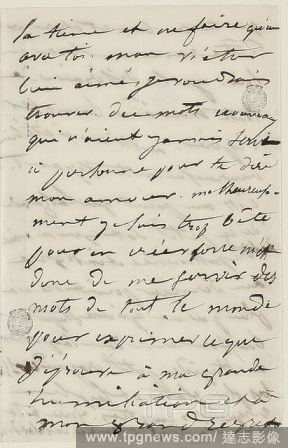 la tienne et ne faire qu'un
avec toi. mon victor
bien aimé, je voudrais
trouver des mots nouveaux
qui n'aient jamais servi
à personne pour te dire
mon amour. malheureuse-
ment je suis trop bête
pour en créer force m'est
donc de me servir des
mots de tout le monde
pour exprimer ce que
j'éprouve à ma grande
humiliation et à
mon grand
www.tpgnews.com 達志影像